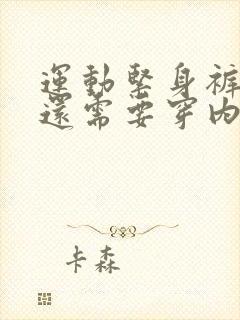 運動緊身褲
還需要穿內
卡森